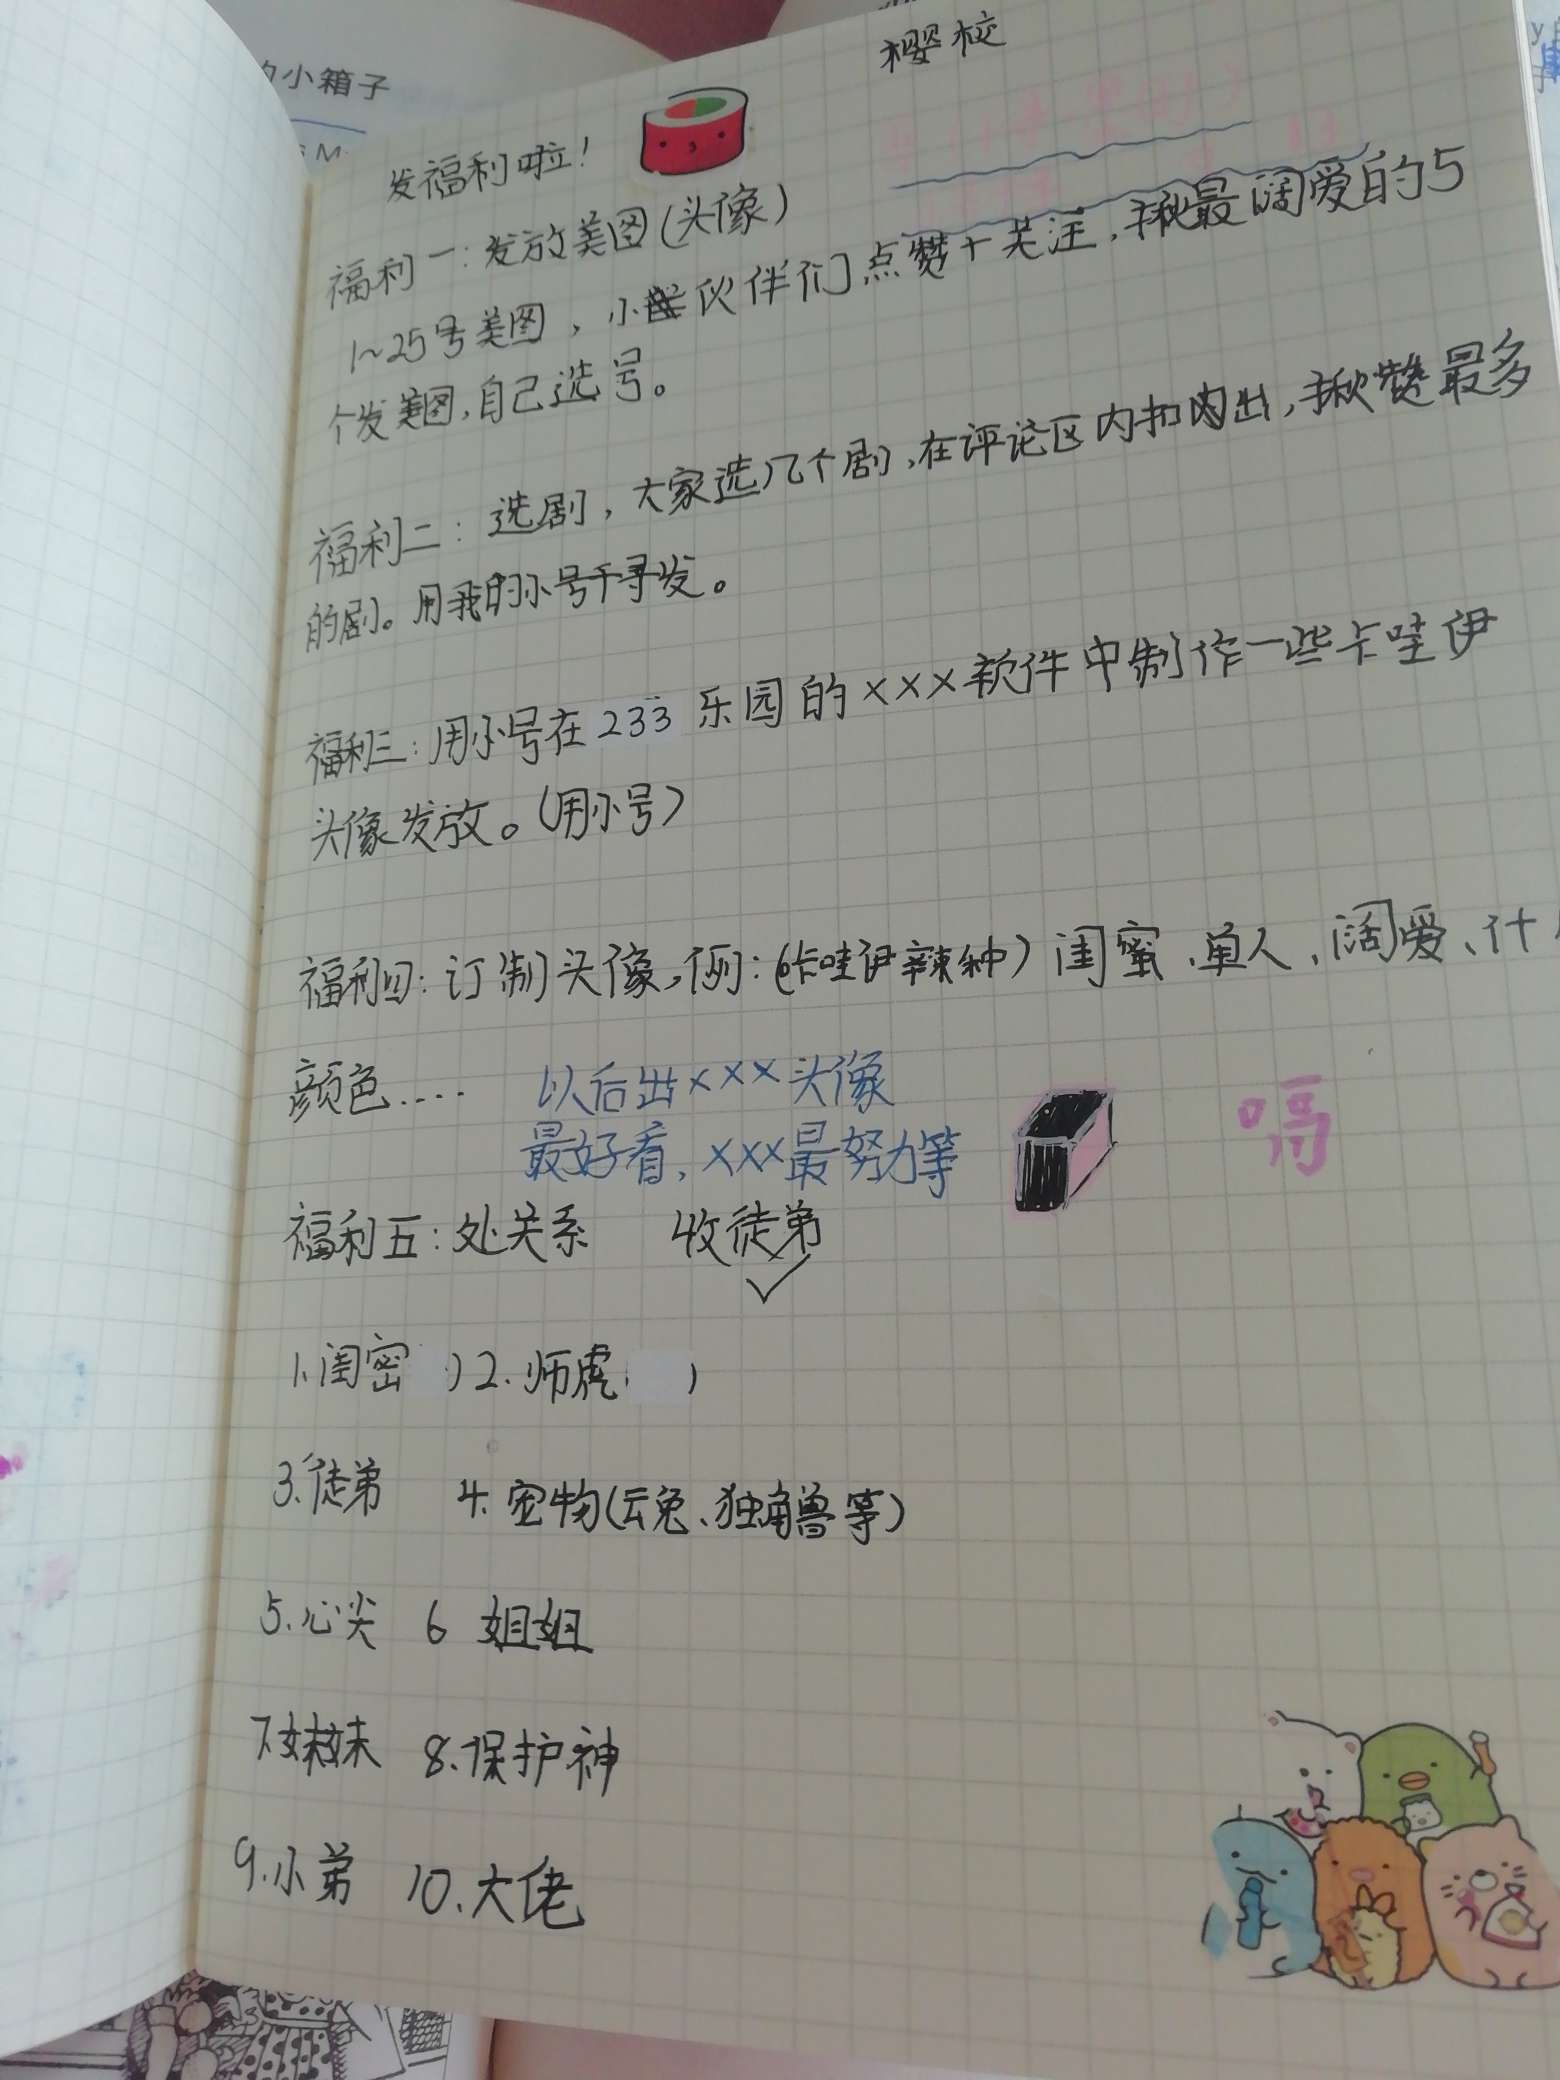 的小箱子
樱校
发福利啦!
福利一:发放美图(头像)
1~25号美图,小伙伴们点赞+关注,揪最阔爱的5
个发美图,自己选号。
福利二:选剧,大家选几个剧,在评论区内扣出,揪赞最多
的剧。用我的小号千寻发。
福利三:用小号在233乐园的×××软件中制作一些卡哇伊
头像发放。(用小号)
福利四:订制头像,例:(卡哇伊辣种)闺蜜、单人、阔爱、什
颜色....
以后出×××头像
最好看,×××最努力等
嗝
福利五:处关系 收徒弟
1.闺密 )2.师虎 )
3.徒弟 4.宠物(云兔、独角兽等)
5.心尖 6 姐姐
7.妹妹 8.保护神
9.小弟 10.大佬